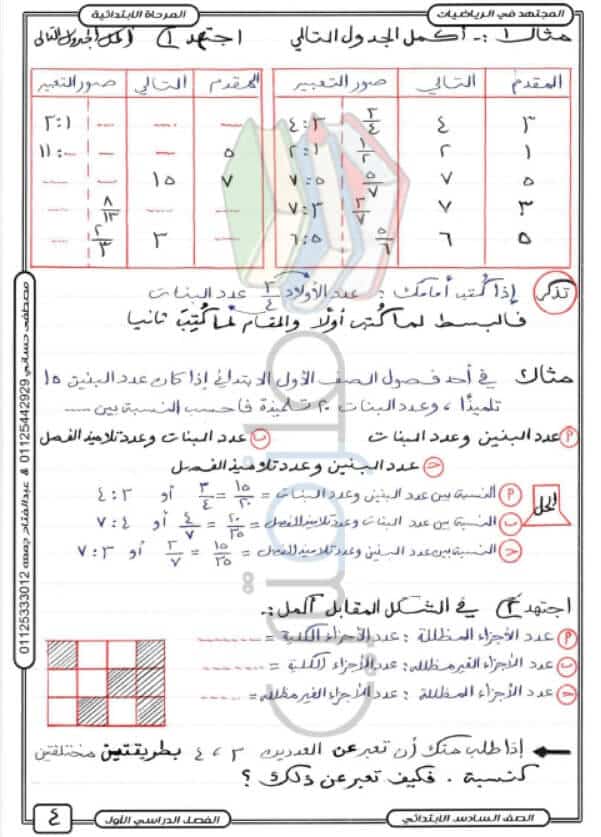 المجتهد في الرياضيات
المرحلة الابتدائية
مثال ١ :- أكمل الجدول التالي
المقدم التالي صور التعبير
٣ ٤ ٣/٤ ٣:٤
١ ٢ ١/٢ ١:٢
٥ ٧ ٥/٧ ٥:٧
٣ ٧ ٣/٧ ٣:٧
٥ ٦ ٥/٦ ٥:٦
اجتهد ١ أكمل الجدول التالي
المقدم التالي صور التعبير
--- --- --- ١:٢
٥ --- --- --:١١
٧ ١٥ --- ---
--- --- ٨/١٣
--- ٣ ٢/٣
تذكر إذا كُتب أمامك : عدد الأولاد ٣/٤ عدد البنات
فالبسط لما كُتب أولًا والمقام لما كُتِبَ ثانيا
مثال في أحد فصول الصف الأول الابتدائي إذا كان عدد البنين ١٥
تلميذًا ، وعدد البنات ٢٠ تلميذة فاحسب النسبة بين ......
أ عدد البنين وعدد البنات ب عدد البنات وعدد تلاميذ الفصل
ج عدد البنين وعدد تلاميذ الفصل
الحل
أ النسبة بين عدد البنين وعدد البنات = ١٥/٢٠ = ٣/٤ أو ٣:٤
ب النسبة بين عدد البنات وعدد تلاميذ الفصل = ٢٠/٣٥ = ٤/٧ أو ٤:٧
ج النسبة بين عدد البنين وعدد تلاميذ الفصل = ١٥/٣٥ = ٣/٧ أو ٣:٧
اجتهد ٢ في الشكل المقابل أكمل :-
أ عدد الأجزاء المظللة : عدد الأجزاء الكلية = --------
ب عدد الأجزاء الغير مظللة : عدد الأجزاء الكلية = --------
ج عدد الأجزاء المظللة : عدد الأجزاء الغير مظللة = ------
إذا طلب منك أن تعبر عن العددين ٣ ، ٤ بطريقتين مختلفتين
كنسبة . فكيف تعبر عن ذلك ؟
مصطفى حساني 01125442929 & عبدالفتاح جمعه 01125333012
الصف السادس الابتدائي
الفصل الدراسي الأول
٤